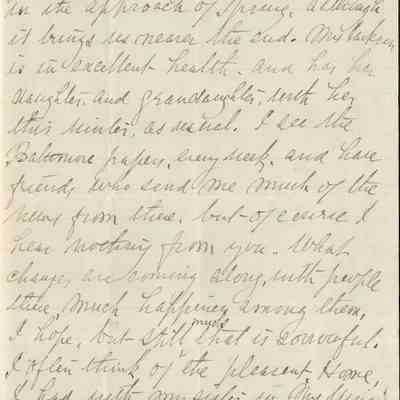 in the approach of Spring, although
it brings us nearer the end. Mrs Jackson
is in excellent health, and has her
daughter, and grandaughter, with her
this winter, as usual. I see the
Baltimore papers, every week, and have
friends who send me much of the
news from there, but of course I
hear nothing from you. What
changes are coming along, with people
there, much happiness among them,
I hope, but still much that is sorrowful.
I often think of the pleasant Home,
I had with my sister in